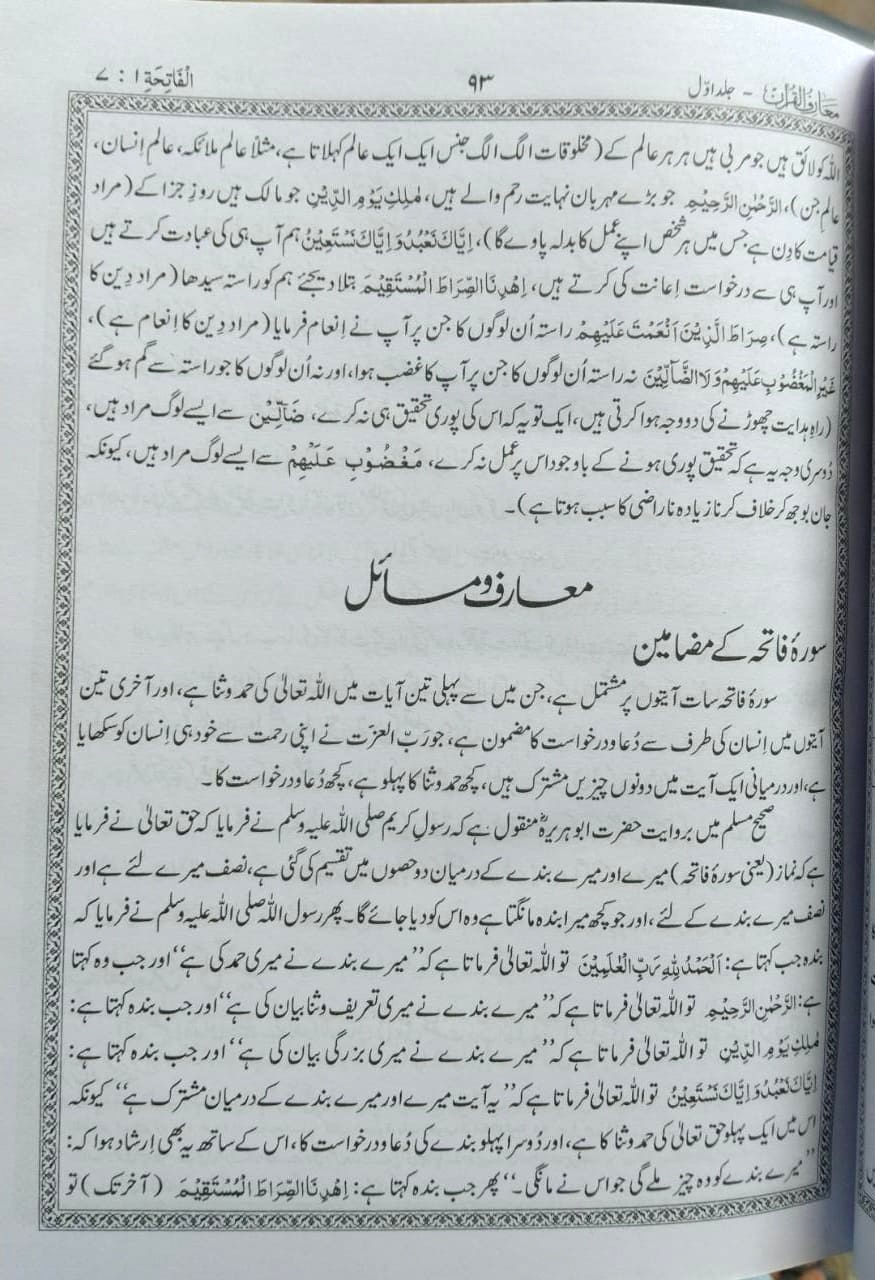 معارف القرآن - جلد اوّل ۹۳ الْفَاتِحَةِ ۱ : ۷
اللہ کو لائق ہیں جو مربی ہیں ہر ہر عالم کے (مخلوقات الگ الگ جنس ایک ایک عالم کہلاتا ہے، مثلاً عالمِ ملائکہ، عالمِ اِنسان،
عالمِ جن)، الرَّحْمٰنِ الرَّحِيْمِ جو بڑے مہربان نہایت رحم والے ہیں، مٰلِكِ يَوْمِ الدِّيْنِ جو مالک ہیں روزِ جزا کے (مراد
قیامت کا دِن ہے جس میں ہر شخص اپنے عمل کا بدلہ پاوے گا)، اِيَّاكَ نَعْبُدُ وَاِيَّاكَ نَسْتَعِيْنُ ہم آپ ہی کی عبادت کرتے ہیں
اور آپ ہی سے درخواست اِعانت کی کرتے ہیں، اِهْدِنَا الصِّرَاطَ الْمُسْتَقِيْمَ بتلا دیجئے ہم کو راستہ سیدھا (مراد دِین کا
راستہ ہے)، صِرَاطَ الَّذِيْنَ اَنْعَمْتَ عَلَيْهِمْ راستہ اُن لوگوں کا جن پر آپ نے اِنعام فرمایا (مراد دِین کا اِنعام ہے)،
غَيْرِ الْمَغْضُوْبِ عَلَيْهِمْ وَلَا الضَّآلِّيْنَ نہ راستہ اُن لوگوں کا جن پر آپ کا غضب ہوا، اور نہ اُن لوگوں کا جو راستہ سے گم ہوگئے
(راہِ ہدایت چھوڑنے کی دو وجہ ہوا کرتی ہیں، ایک تو یہ کہ اس کی پوری تحقیق ہی نہ کرے، ضَآلِّيْنَ سے ایسے لوگ مراد ہیں،
دُوسری وجہ یہ ہے کہ تحقیق پوری ہونے کے باوجود اس پر عمل نہ کرے، مَغْضُوْبِ عَلَيْهِمْ سے ایسے لوگ مراد ہیں، کیونکہ
جان بوجھ کر خلاف کرنا زیادہ ناراضی کا سبب ہوتا ہے)۔
معارف و مسائل
سورۂ فاتحہ کے مضامین
سورۂ فاتحہ سات آیتوں پر مشتمل ہے، جن میں سے پہلی تین آیات میں اللہ تعالیٰ کی حمد و ثنا ہے، اور آخری تین
آیتوں میں اِنسان کی طرف سے دُعا و درخواست کا مضمون ہے، جو رَبّ العزّت نے اپنی رحمت سے خود ہی اِنسان کو سکھایا
ہے، اور درمیانی ایک آیت میں دونوں چیزیں مشترک ہیں، کچھ حمد و ثنا کا پہلو ہے، کچھ دُعا و درخواست کا۔
صحیح مسلم میں بروایت حضرت ابو ہریرہؓ منقول ہے کہ رسولِ کریم صلی اللہ علیہ وسلم نے فرمایا کہ حق تعالیٰ نے فرمایا
ہے کہ نماز (یعنی سورۂ فاتحہ) میرے اور میرے بندے کے درمیان دو حصوں میں تقسیم کی گئی ہے، نصف میرے لئے ہے اور
نصف میرے بندے کے لئے، اور جو کچھ میرا بندہ مانگتا ہے وہ اس کو دیا جائے گا۔ پھر رسول اللہ صلی اللہ علیہ وسلم نے فرمایا کہ
بندہ جب کہتا ہے: اَلْحَمْدُ لِلّٰهِ رَبِّ الْعٰلَمِيْنَ تو اللہ تعالیٰ فرماتا ہے کہ ”میرے بندے نے میری حمد کی ہے“ اور جب وہ کہتا
ہے: الرَّحْمٰنِ الرَّحِيْمِ تو اللہ تعالیٰ فرماتا ہے کہ ”میرے بندے نے میری تعریف و ثنا بیان کی ہے“ اور جب بندہ کہتا ہے:
مٰلِكِ يَوْمِ الدِّيْنِ تو اللہ تعالیٰ فرماتا ہے کہ ”میرے بندے نے میری بزرگی بیان کی ہے“ اور جب بندہ کہتا ہے:
اِيَّاكَ نَعْبُدُ وَاِيَّاكَ نَسْتَعِيْنُ تو اللہ تعالیٰ فرماتا ہے کہ ”یہ آیت میرے اور میرے بندے کے درمیان مشترک ہے“ کیونکہ
اس میں ایک پہلو حق تعالیٰ کی حمد و ثنا کا ہے، اور دُوسرا پہلو بندے کی دُعا و درخواست کا، اس کے ساتھ یہ بھی اِرشاد ہوا کہ:
”میرے بندے کو وہ چیز ملے گی جو اس نے مانگی۔“ پھر جب بندہ کہتا ہے: اِهْدِنَا الصِّرَاطَ الْمُسْتَقِيْمَ (آخر تک) تو